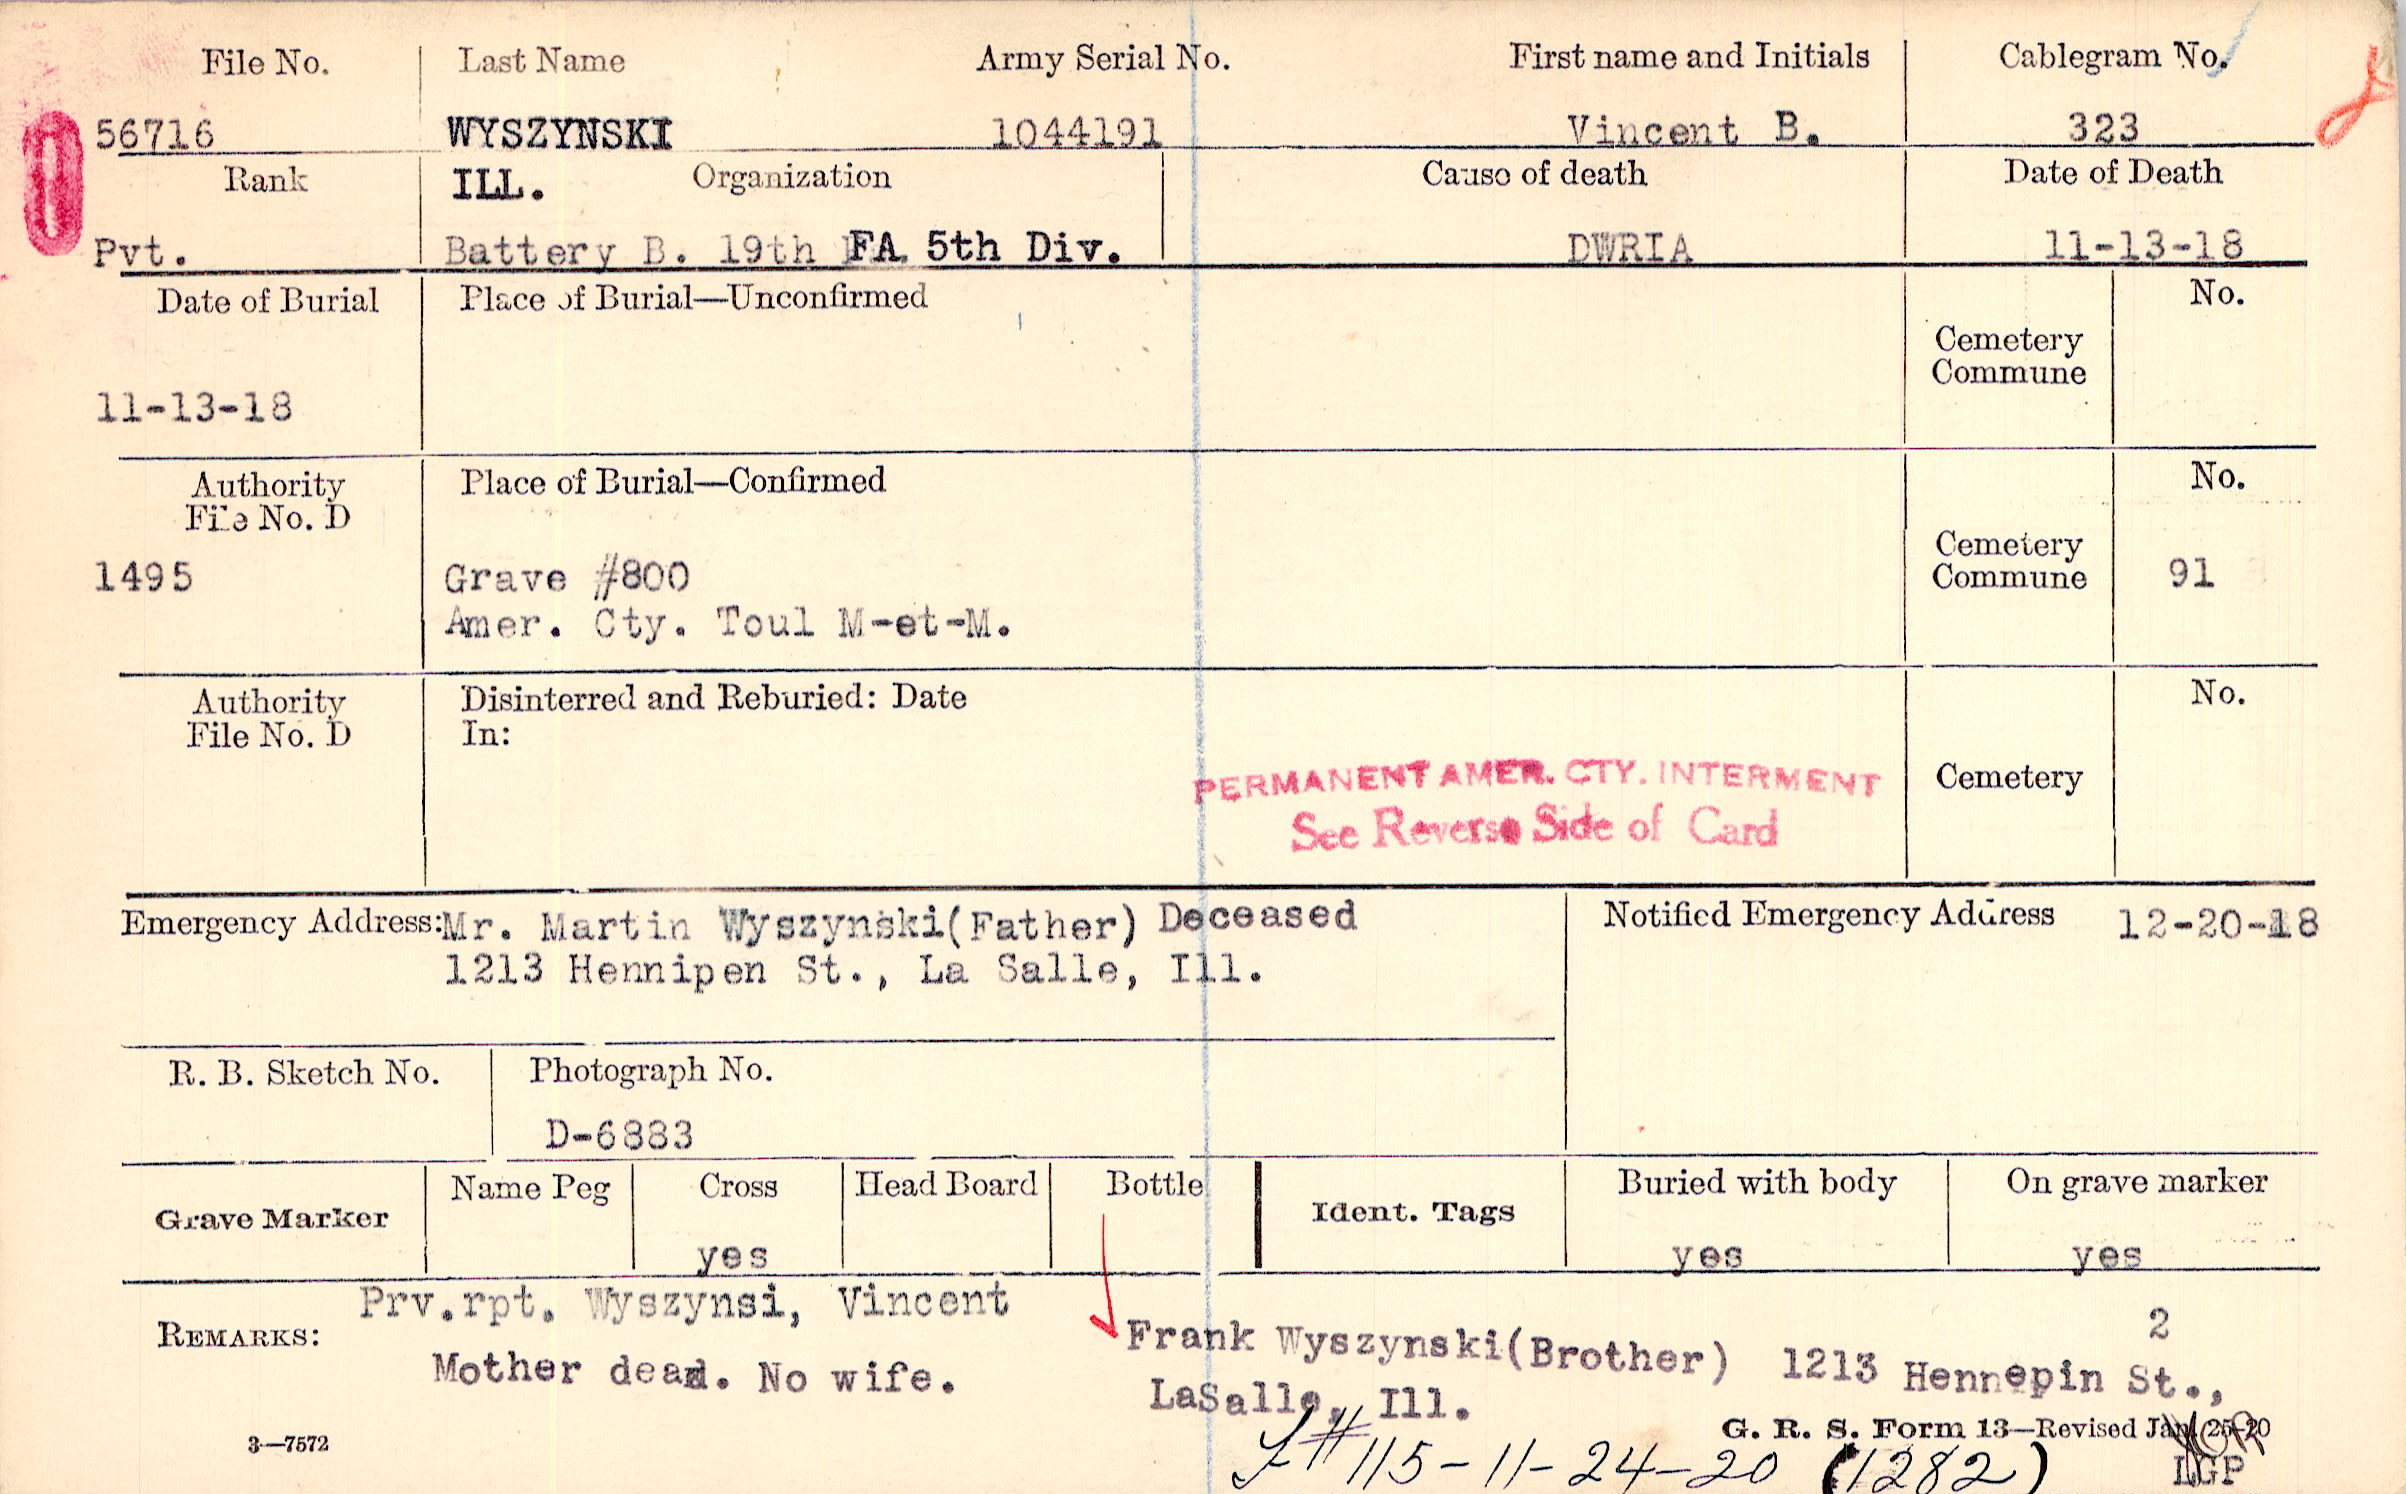 File No. Last Name Army Serial No. First name and Initials Cablegram No.
56716 WYSZYNSKI 1044191 Vincent B. 323
Rank ILL. Organization Cause of death Date of Death
Pvt. Battery B. 19th FA 5th Div. DWRIA 11-13-18
Date of Burial Place of Burial—Unconfirmed No.
Cemetery
Commune
11-13-18
Authority Place of Burial—Confirmed No.
File No. D
Cemetery
1495 Grave #800 Commune 91
Amer. Cty. Toul M-et-M.
Authority Disinterred and Reburied: Date No.
File No. D In:
PERMANENT AMER. CTY. INTERMENT Cemetery
See Reverse Side of Card
Emergency Address: Mr. Martin Wyszynski(Father) Deceased Notified Emergency Address 12-20-18
1213 Hennipen St., La Salle, Ill.
R. B. Sketch No. Photograph No.
D-6883
Grave Marker Name Peg Cross Head Board Bottle Ident. Tags Buried with body On grave marker
yes yes yes
Prv.rpt. Wyszynsi, Vincent 2
REMARKS: Frank Wyszynski(Brother) 1213 Hennepin St.,
Mother dead. No wife. LaSalle, Ill.
G. R. S. Form 13—Revised Jan. 25-20
3—7572 #115-11-24-20 (1282) LGP